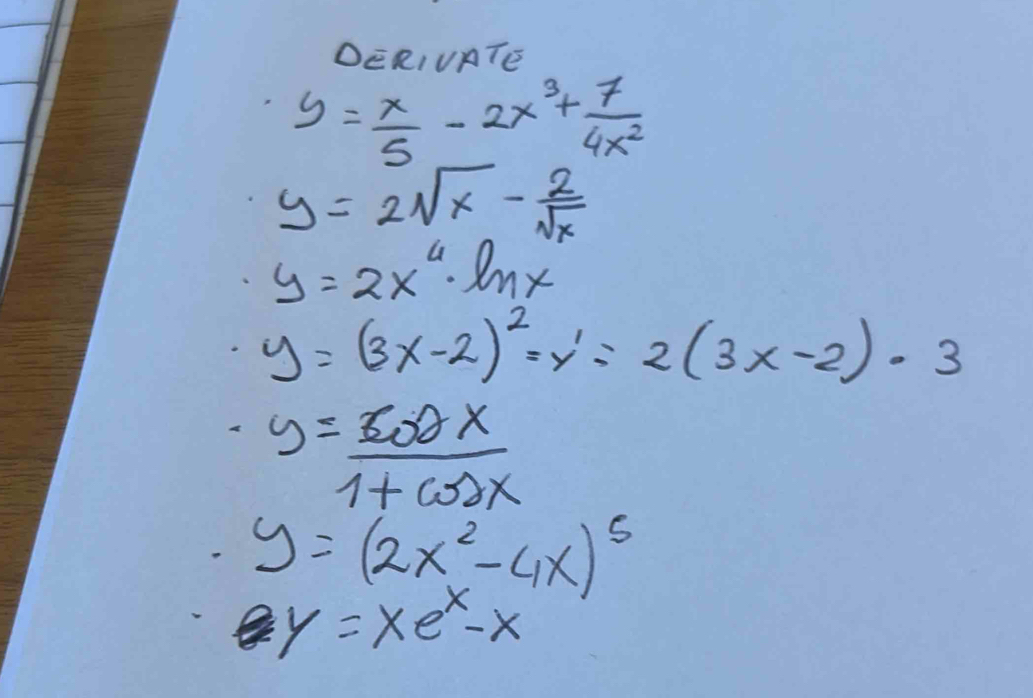 DERIVATE
· y = x/5 - 2x³ + 7/4x²
· y = 2√x - 2/√x
· y = 2x⁴ · lnx
· y = (3x-2)² = y' = 2(3x-2) · 3
· y = cosx/1+cosx
· y = (2x²-4x)⁵
· y = xeˣ-x